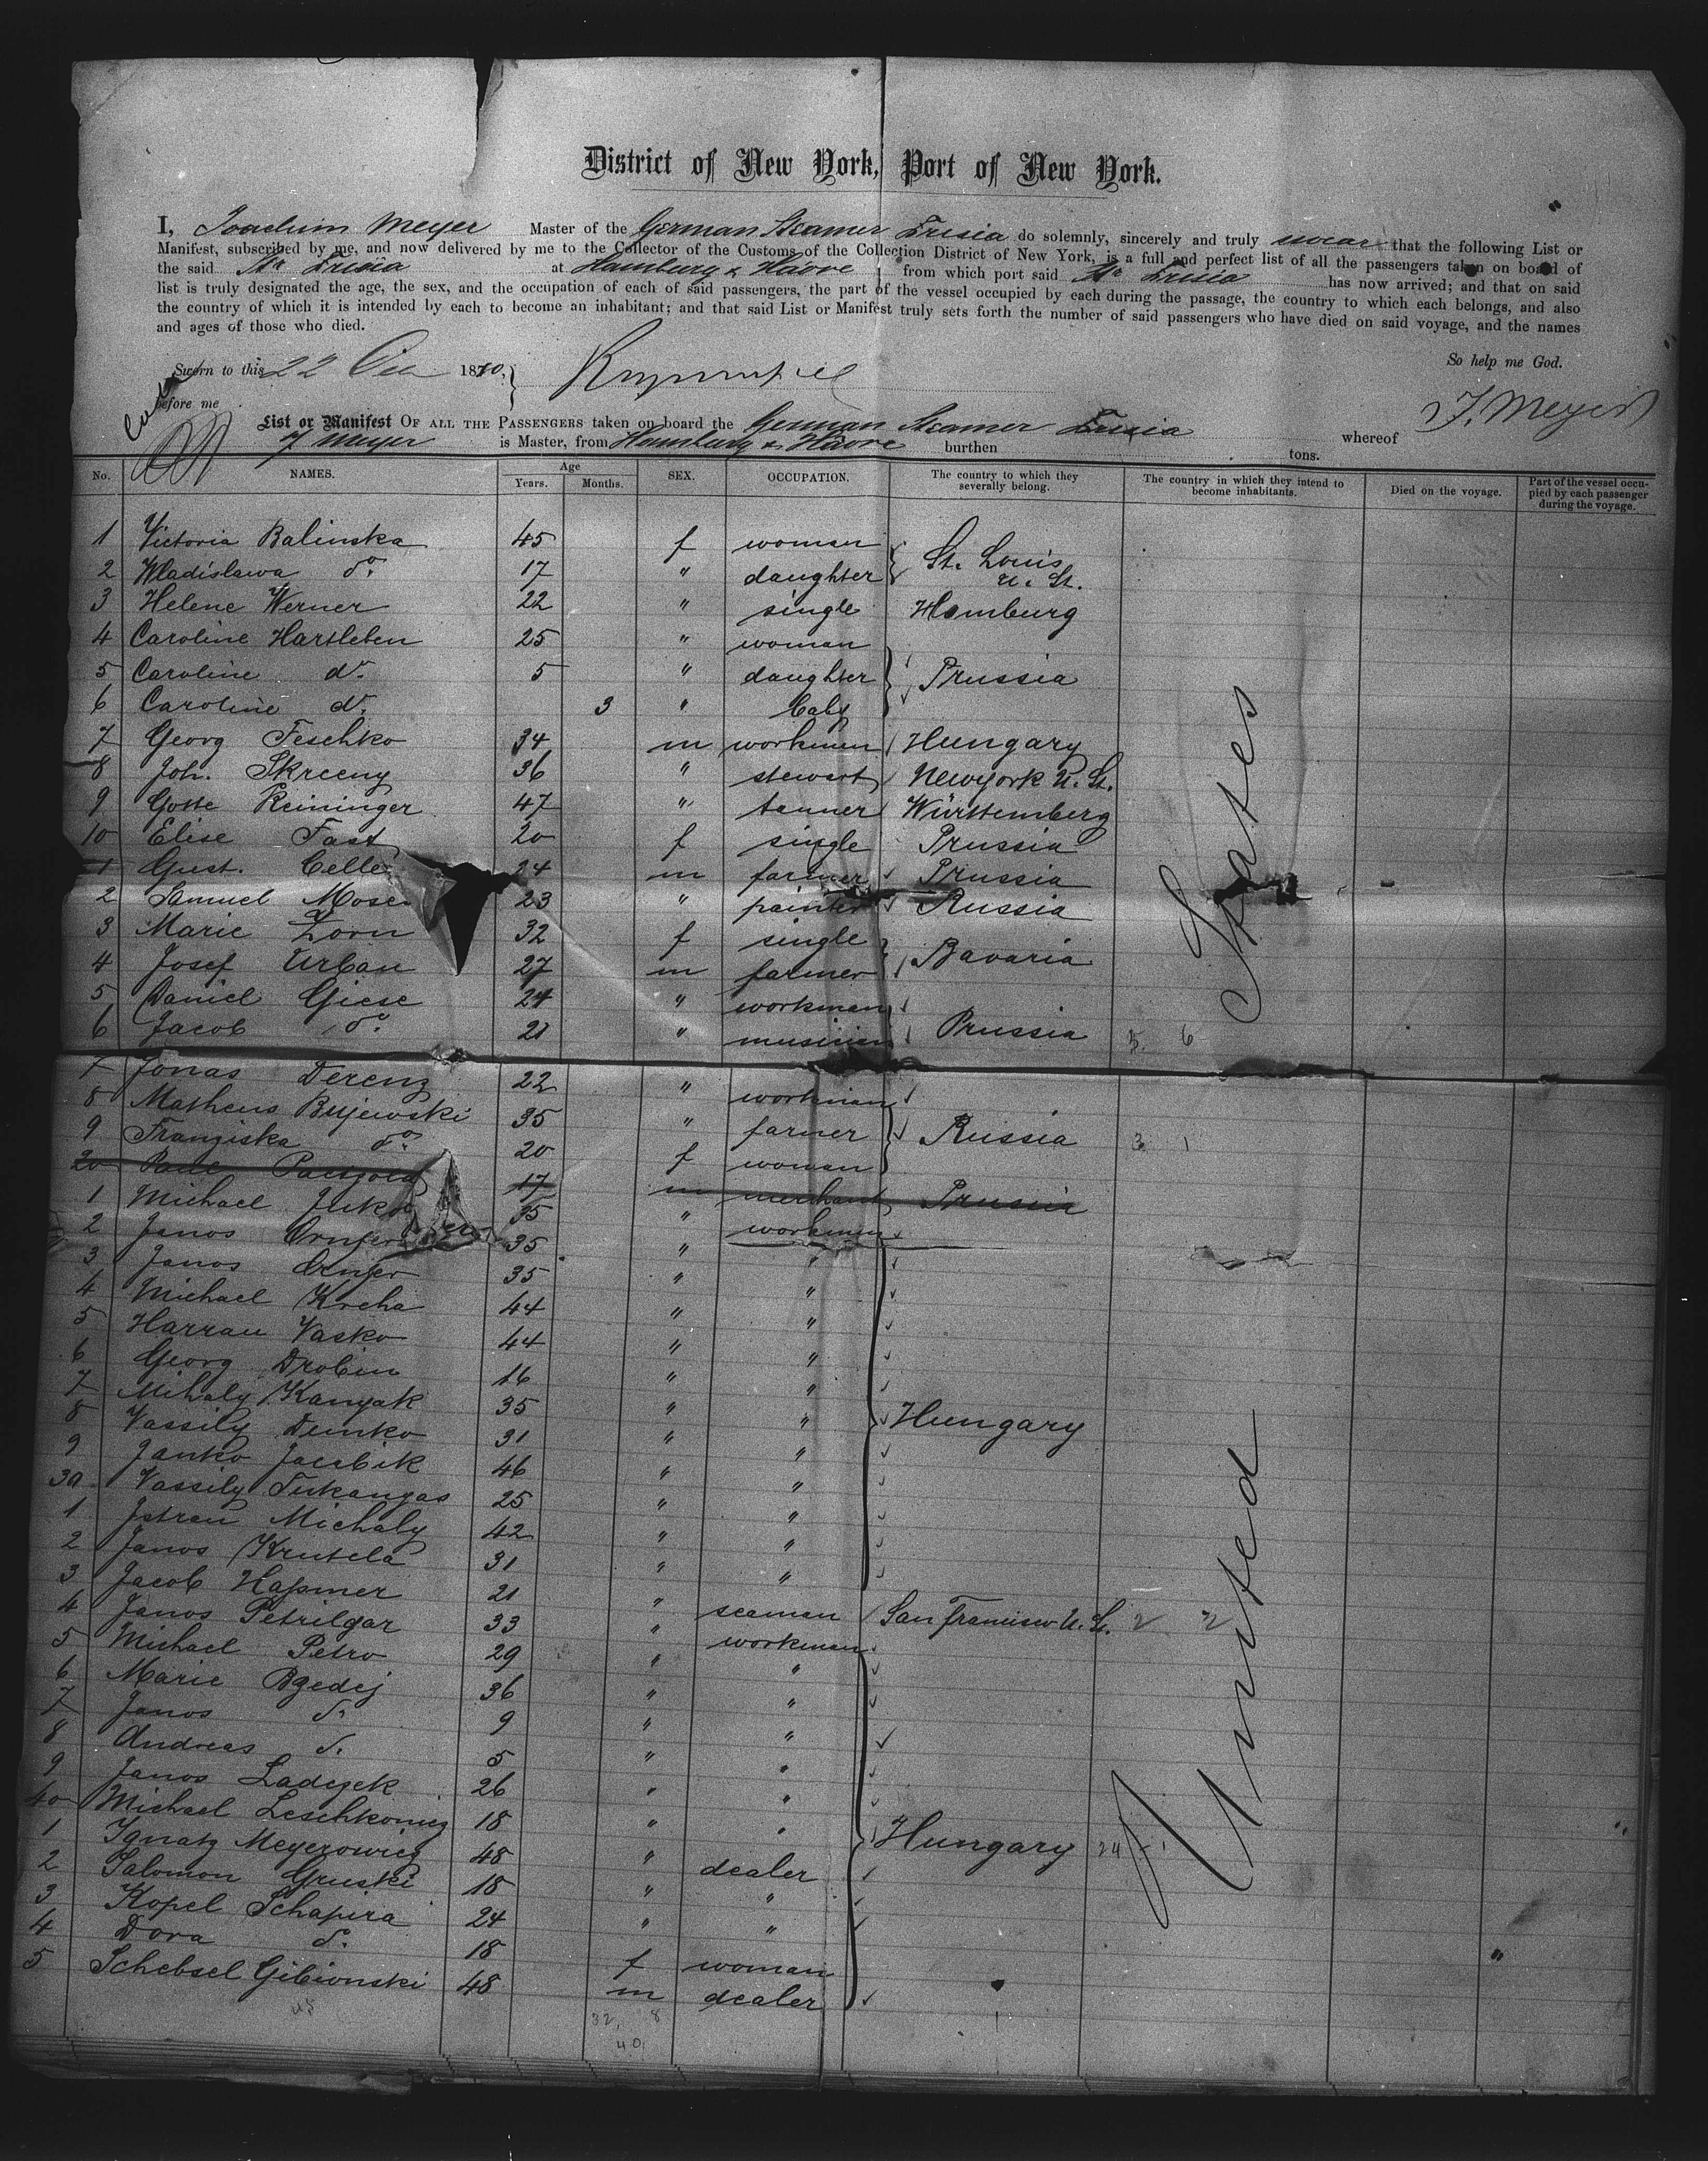 District of New York, Port of New York.
I, Joachim Meyer Master of the German Steamer Frisia do solemnly, sincerely and truly swear that the following List or
Manifest, subscribed by me, and now delivered by me to the Collector of the Customs of the Collection District of New York, is a full and perfect list of all the passengers taken on board of
the said Str Frisia at Hamburg & Havre from which port said Str Frisia has now arrived; and that on said
list is truly designated the age, the sex, and the occupation of each of said passengers, the part of the vessel occupied by each during the passage, the country to which each belongs, and also
the country of which it is intended by each to become an inhabitant; and that said List or Manifest truly sets forth the number of said passengers who have died on said voyage, and the names
and ages of those who died.
So help me God.
Sworn to this 22 1880,
before me
J. Meyer
List or Manifest OF ALL THE PASSENGERS taken on board the German Steamer Frisia whereof
J Meyer is Master, from Hamburg & Havre burthen tons.
No. NAMES. Age Years. Months. SEX. OCCUPATION. The country to which they severally belong. The country in which they intend to become inhabitants. Died on the voyage. Part of the vessel occupied by each passenger during the voyage.
1 Victoria Balinska 45 f woman St. Louis
2 Wladislawa do. 17 " daughter U. St.
3 Helene Werner 22 " single Hamburg
4 Caroline Hartleben 25 " woman
5 Caroline do. 5 " daughter Prussia
6 Caroline do. 3 " baby
7 Georg Feschko 34 m workman Hungary
8 Joh. Skreeny 36 " stewart Newyork U. St.
9 Gotte Reininger 47 " tanner Württemberg
10 Elise Fast 20 f single Prussia
1 Gust. Celle 24 m farmer Prussia
2 Samuel Mose 23 " painter Russia
3 Marie Zorn 32 f single Bavaria
4 Josef Urban 27 m farmer
5 Daniel Giese 24 " workman
6 Jacob do. 21 " musician Prussia 5. 6
7 Jonas Derenz 22 " workman
8 Matheus Bujewski 35 " farmer Russia 3 1
9 Franziska do. 20 f woman
20 Paul 17 m merchant Prussia
1 Michael Juko 35 " workman
2 Janos 35 " "
3 Janos 35 " "
4 Michael Kreha 44 " "
5 Harran Vasko 44 " "
6 Georg Drobin 16 " "
7 Mihaly Kanyak 35 " " Hungary
8 Vassily Demko 31 " "
9 Janko Jacabik 46 " "
30 Vassily Tukangas 25 " "
1 Istran Michaly 42 " "
2 Janos Krutela 31 " "
3 Jacob Hassmer 21 " seaman San Francisco U. St. 2 2
4 Janos Petrilgar 33 " workman
5 Michael Petro 29 " "
6 Marie Bgedej 36 " "
7 Janos do. 9 " "
8 Andreas do. 5 " "
9 Janos Ladizek 26 " "
40 Michael Leschkowicz 18 " " Hungary 24 1
1 Ignatz Meyerowicz 48 " dealer
2 Salomon Gruski 18 " "
3 Kopel Schapira 24 " "
4 Dora do. 18 f woman
5 Schebsel Gibionski 48 m dealer
45 32, 8
40
United States